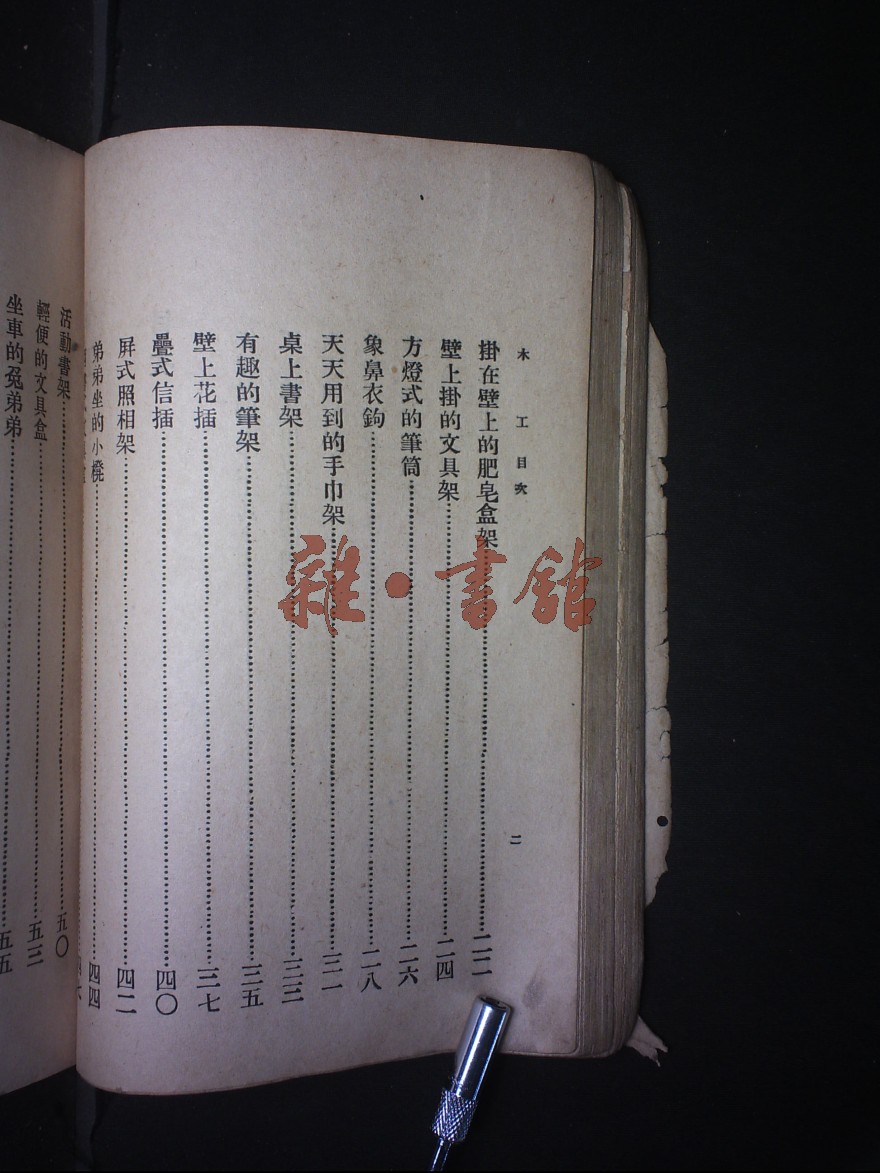 木工目次
二
掛在壁上的肥皂盒架……二二
壁上掛的文具架……二四
方燈式的筆筒……二六
象鼻衣鉤……二八
天天用到的手巾架……三一
桌上書架……三三
有趣的筆架……三五
壁上花插……三七
疊式信插……四〇
屏式照相架……四二
弟弟坐的小櫈……四四
活動書架……五〇
輕便的文具盒……五三
坐車的兔弟弟……五五
雜·書館